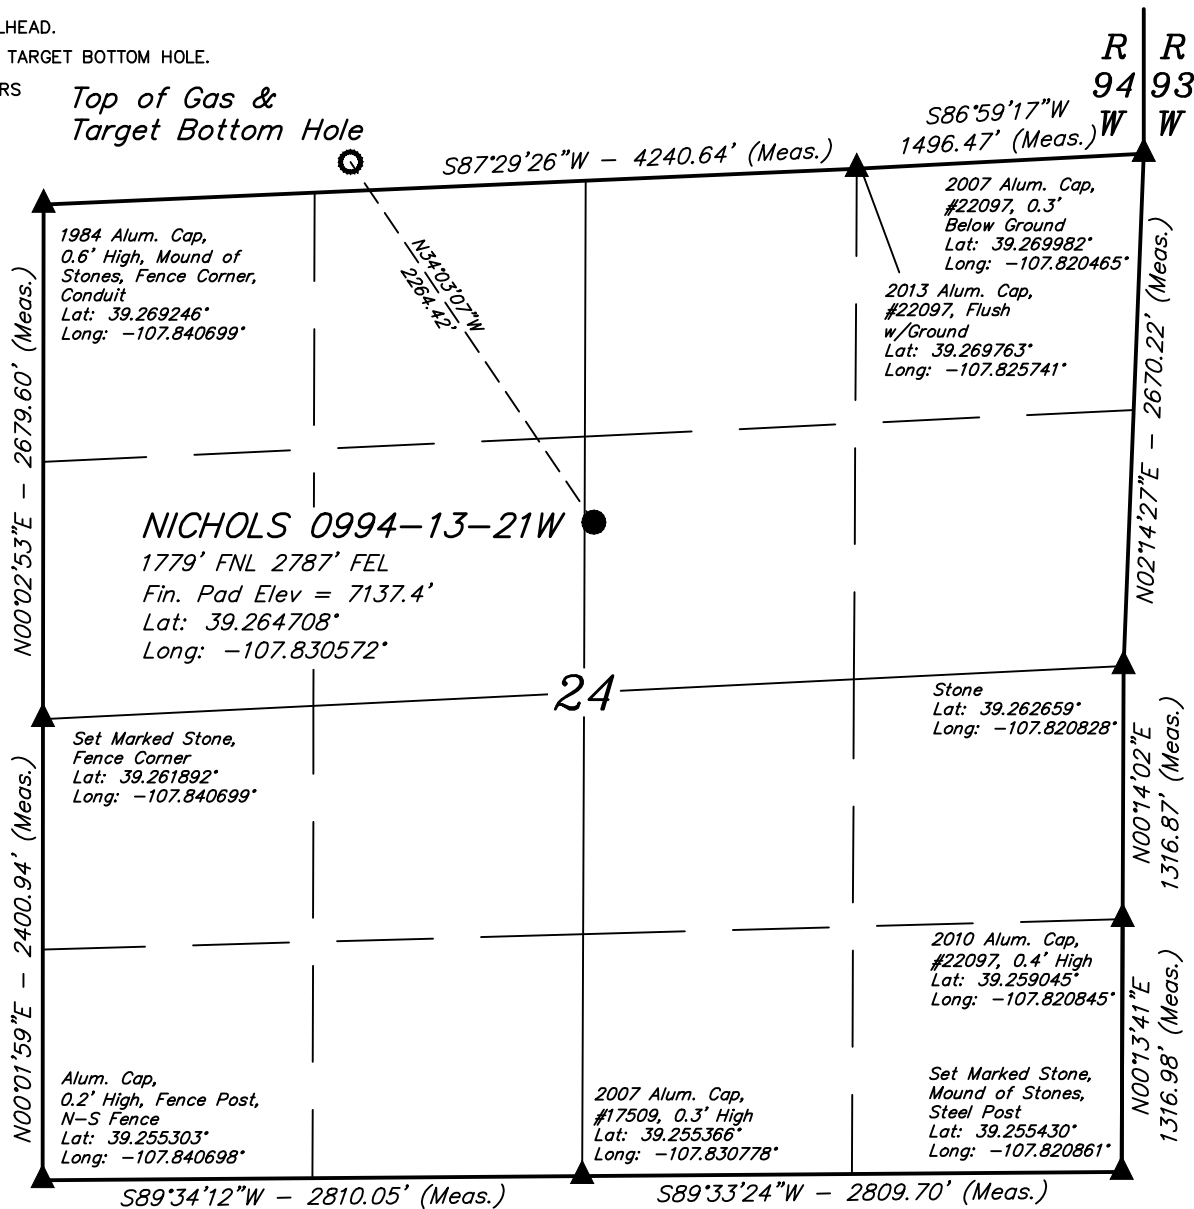 LHEAD.
TARGET BOTTOM HOLE.
RS
Top of Gas &
Target Bottom Hole
R R
94 93
W W
S86°59'17"W
1496.47' (Meas.)
S87°29'26"W – 4240.64' (Meas.)
1984 Alum. Cap,
0.6' High, Mound of
Stones, Fence Corner,
Conduit
Lat: 39.269246°
Long: –107.840699°
N34°03'07"W
2264.42'
2007 Alum. Cap,
#22097, 0.3'
Below Ground
Lat: 39.269982°
Long: –107.820465°
2013 Alum. Cap,
#22097, Flush
w/Ground
Lat: 39.269763°
Long: –107.825741°
N00°02'53"E – 2679.60' (Meas.)
N02°14'27"E – 2670.22' (Meas.)
NICHOLS 0994–13–21W
1779' FNL 2787' FEL
Fin. Pad Elev = 7137.4'
Lat: 39.264708°
Long: –107.830572°
24
Stone
Lat: 39.262659°
Long: –107.820828°
Set Marked Stone,
Fence Corner
Lat: 39.261892°
Long: –107.840699°
N00°14'02"E
1316.87' (Meas.)
N00°01'59"E – 2400.94' (Meas.)
2010 Alum. Cap,
#22097, 0.4' High
Lat: 39.259045°
Long: –107.820845°
N00°13'41"E
1316.98' (Meas.)
Alum. Cap,
0.2' High, Fence Post,
N–S Fence
Lat: 39.255303°
Long: –107.840698°
2007 Alum. Cap,
#17509, 0.3' High
Lat: 39.255366°
Long: –107.830778°
Set Marked Stone,
Mound of Stones,
Steel Post
Lat: 39.255430°
Long: –107.820861°
S89°34'12"W – 2810.05' (Meas.)
S89°33'24"W – 2809.70' (Meas.)